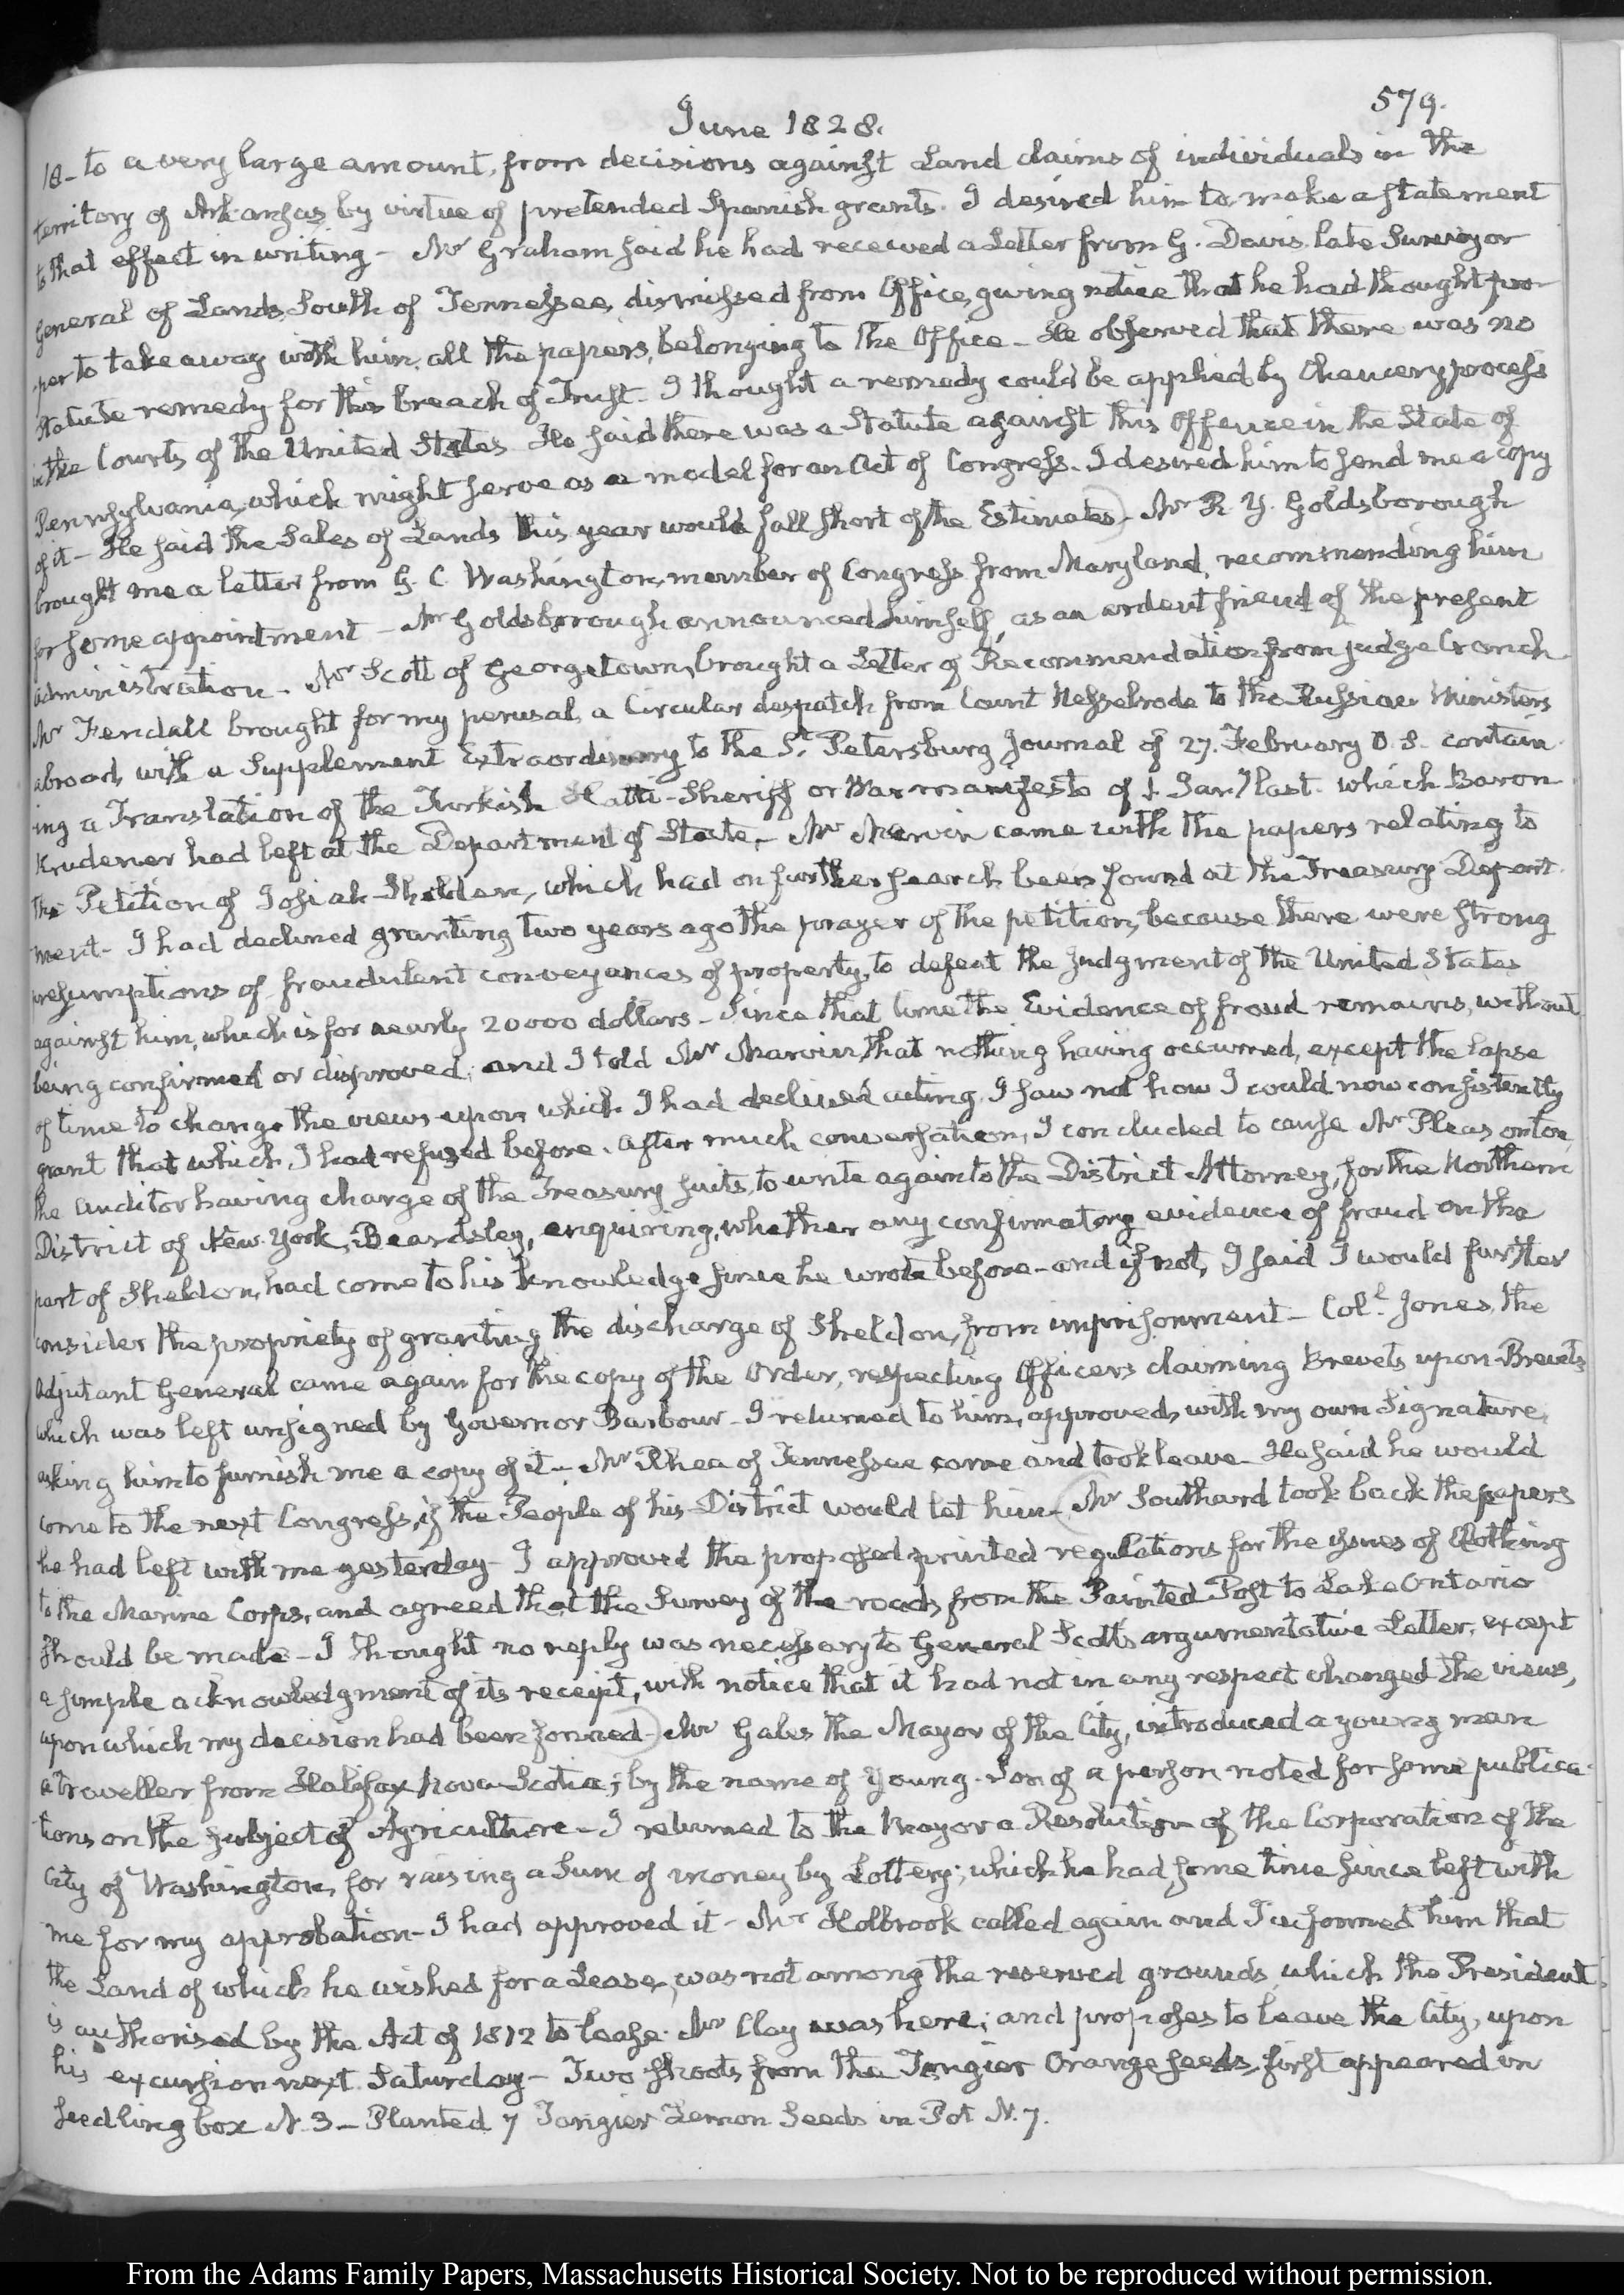 579.
June 1828.
18– to a very large amount, from decisions against Land claims of individuals in the
territory of Arkansas, by virtue of pretended Spanish grants. I desired him to make a statement
to that effect in writing – Mr Graham said he had received a Letter from G. Davis, late Surveyor
General of Lands South of Tennessee, dismissed from Office, giving notice that he had thought pro-
per to take away with him, all the papers, belonging to the Office – He observed that there was no
Statute remedy for this breach of Trust – I thought a remedy could be applied by Chancery process
in the Courts of the United States He said there was a Statute against this Offence in the State of
Pennsylvania, which might serve as a model for an Act of Congress. I desired him to send me a copy
of it – He said the Sales of Lands this year would fall short of the Estimates – Mr R. Y. Goldsborough
brought me a letter from G. C. Washington, member of Congress from Maryland, recommending him
for some appointment – Mr Goldsborough announced himself, as an ardent friend of the present
administration. Mr Scott of Georgetown, brought a Letter of Recommendation from judge Cranch.
Mr Fendall brought for my perusal, a Circular despatch from Count Nesselrode to the Russian Ministers
abroad, with a Supplement Extraordinary to the St. Petersburg Journal of 27. February O.S. contain-
ing a Translation of the Turkish Hatti-Sheriff or War manifesto of Jany last. which Baron
Krudener had left at the Department of State. – Mr Marvin came with the papers relating to
the Petition of Josiah Sheldon, which had on further search been found at the Treasury Depart-
ment – I had declined granting two years ago the prayer of the petition, because there were strong
presumptions of fraudulent conveyances of property, to defeat the judgment of the United States
against him, which is for nearly 20000 dollars – Since that time the Evidence of fraud remains, without
being confirmed or disproved; and I told Mr Marvin, that nothing having occurred, except the lapse
of time to change the views upon which I had declined acting, I saw not how I could now consistently
grant that which I had refused before. After much conversation, I concluded to cause Mr Pleasonton
the Auditor having charge of the Treasury suits, to write again to the District Attorney, for the Northern
District of New-York, Beardsley, enquiring, whether any confirmatory evidence of fraud on the
part of Sheldon, had come to his knowledge since he wrote before – and if not, I said I would further
consider the propriety of granting the discharge of Sheldon, from imprisonment – Coll. Jones, the
Adjutant General came again for the copy of the Order, respecting Officers claiming Brevets upon Brevets
which was left unsigned by Governor Barbour – I returned to him, approved, with my own Signature,
asking him to furnish me a copy of it – Mr Rhea of Tennessee came and took leave – He said he would
come to the next Congress, if the People of his District would let him – Mr Southard took back the papers
he had left with me yesterday – I approved the proposed printed regulations for the issues of Clothing
to the Marine Corps, and agreed that the Survey of the roads from the Painted Post to Lake Ontario
should be made – I thought no reply was necessary to General Scott's argumentative Letter, except
a simple acknowledgment of its receipt, with notice that it had not in any respect changed the views,
upon which my decision had been formed – Mr Gales the Mayor of the City, introduced a young man
a traveller from Halifax Nova-Scotia; by the name of Young. Son of a person noted for some publica-
tions on the subject of Agriculture – I returned to the Mayor a Resolution of the Corporation of the
City of Washington, for raising a Sum of money by Lottery; which he had some time since left with
me for my approbation – I had approved it – Mr Holbrook called again and I informed him that
the Land of which he wished for a Lease, was not among the reserved grounds which the President
is authorised by the Act of 1812 to lease. Mr Clay was here; and proposes to leave the City, upon
his excursion next Saturday – Two shoots from the Tangier Orange seeds, first appeared in
Seedling box N. 3 – Planted 7 Tangier Lemon Seeds in Pot N. 7.
From the Adams Family Papers, Massachusetts Historical Society. Not to be reproduced without permission.